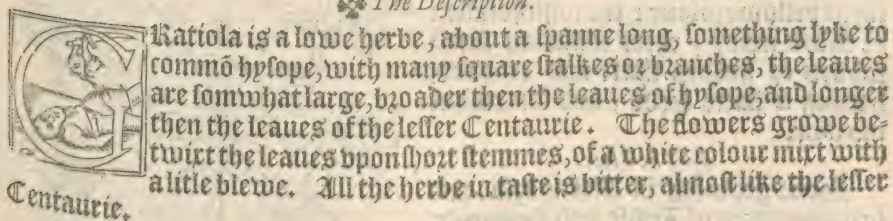 The Description.
GRatiola is a lowe herbe, about a ſpanne long, ſomething lyke to
commō hyſope, with many ſquare ſtalkes or branches, the leaues
are ſomwhat large, broader then the leaues of hyſope, and longer
then the leaues of the leſſer Centaurie. The flowers growe be=
twixt the leaues vpon ſhort ſtemmes, of a white colour mixt with
a litle blewe. All the herbe in taſte is bitter, almoſt like the leſſer
Centaurie.